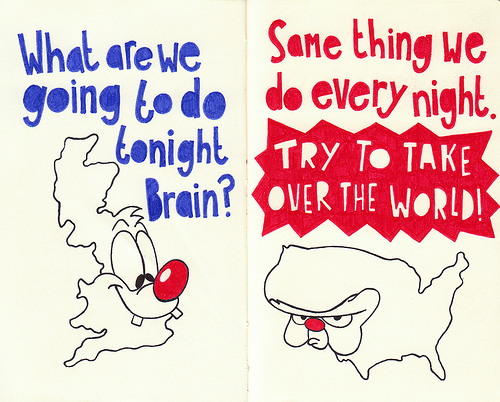 What are we
going to do
tonight
Brain?
Same thing we
do every night.
TRY TO TAKE
OVER THE WORLD!